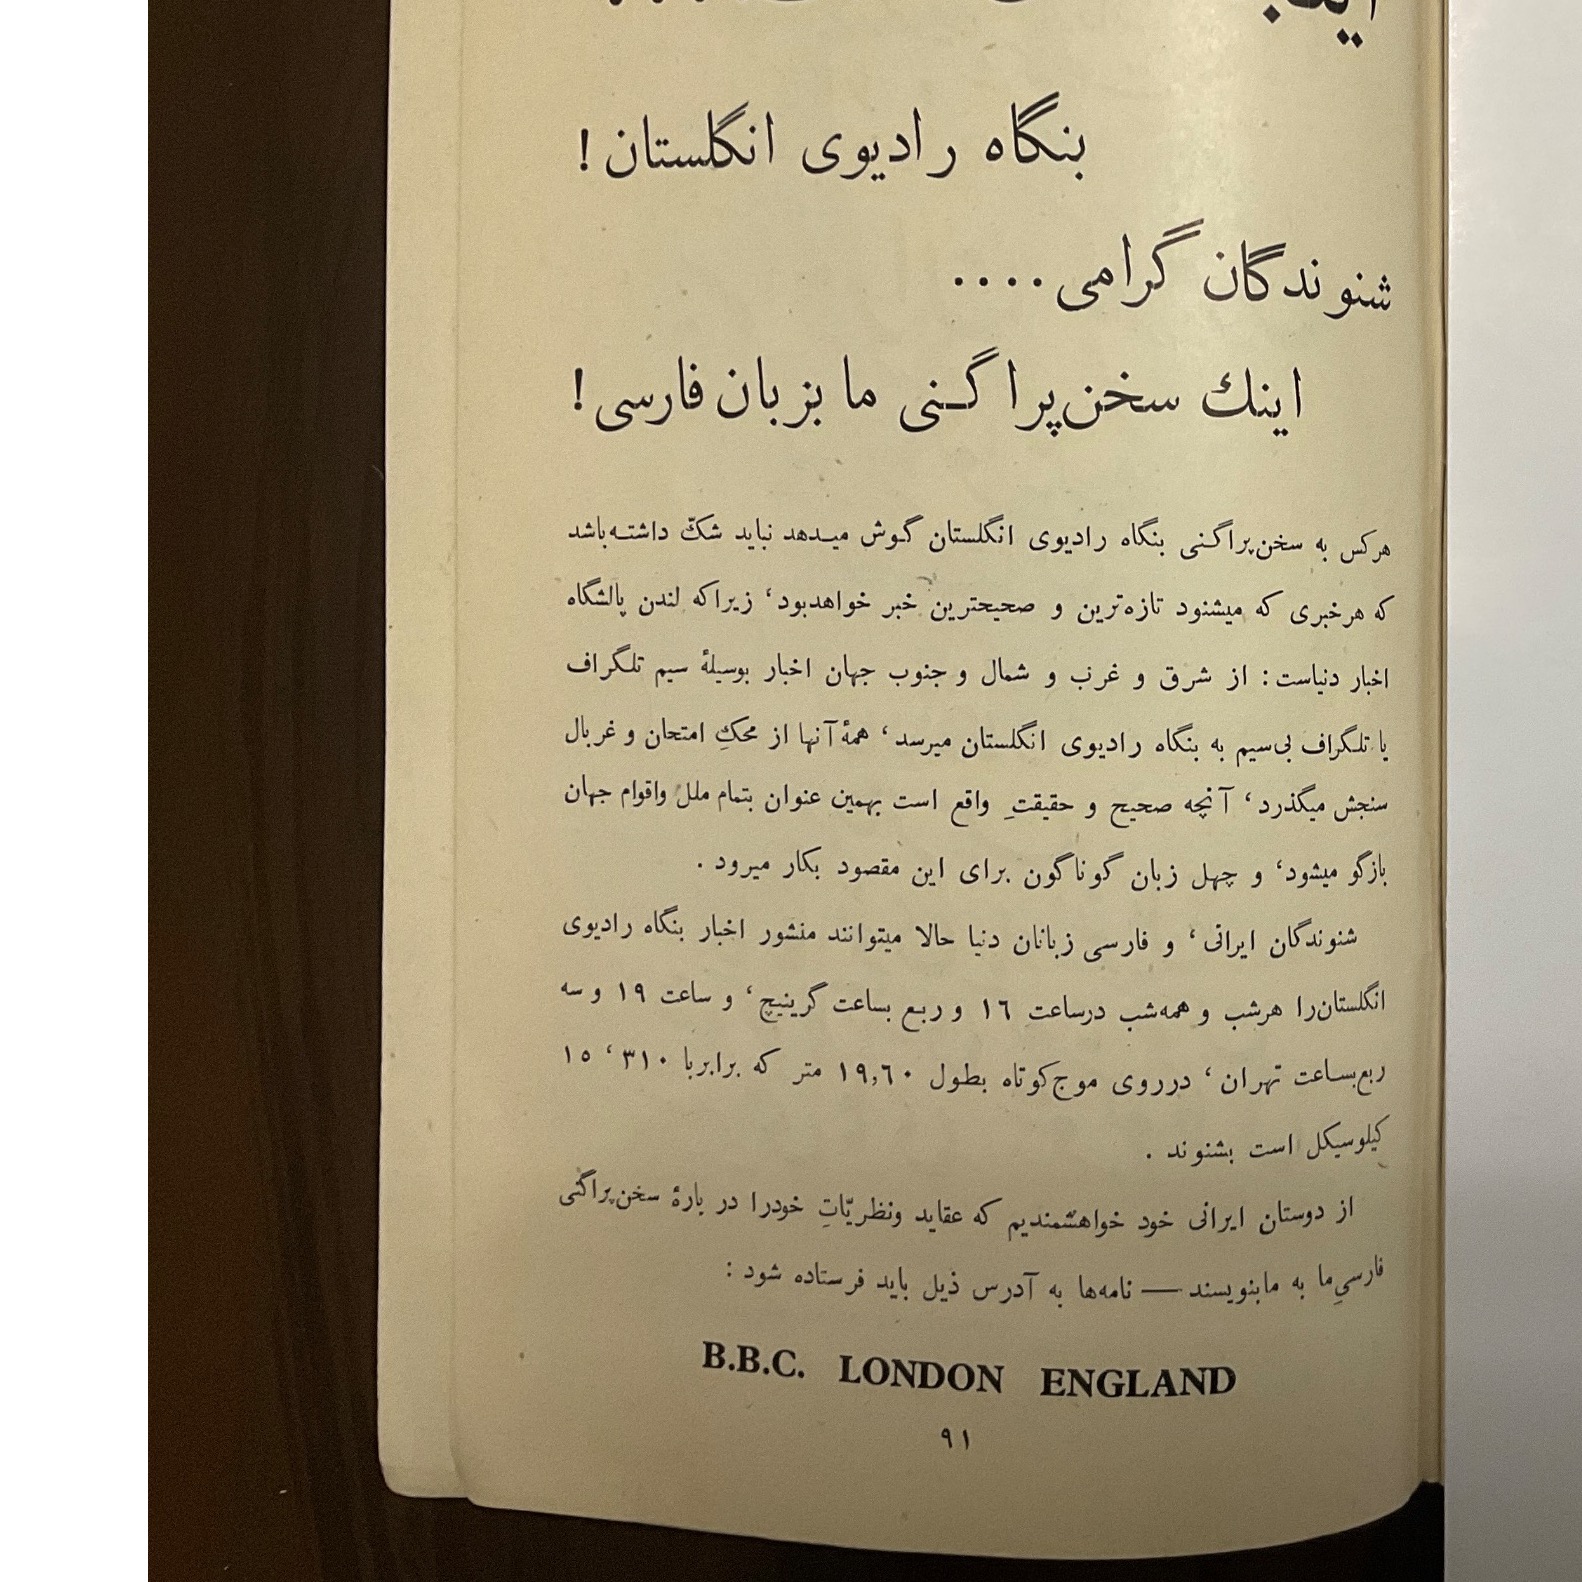 بنگاه رادیوی انگلستان !
شنوندگان گرامی . . . .
اینك سخن‌پراگنی ما بزبان فارسی !
هرکس به سخن‌پراگنی بنگاه رادیوی انگلستان گوش میدهد نباید شكّ داشته‌باشد
که هرخبری که میشنود تازه‌ترین و صحیحترین خبر خواهدبود، زیراکه لندن پالشگاه
اخبار دنیاست : از شرق و غرب و شمال و جنوب جهان اخبار بوسیلهٔ سیم تلگراف
یا تلگراف بی‌سیم به بنگاه رادیوی انگلستان میرسد، همهٔ آنها از محكِ امتحان و غربال
سنجش میگذرد، آنچه صحیح و حقیقتِ واقع است بهمین عنوان بتمام ملل واقوام جهان
بازگو میشود، و چهل زبان گوناگون برای این مقصود بکار میرود .
شنوندگان ایرانی، و فارسی زبانان دنیا حالا میتوانند منشور اخبار بنگاه رادیوی
انگلستان‌را هرشب و همه‌شب درساعت ١٦ و ربع بساعت گرینیچ، و ساعت ١٩ و سه
ربع‌بساعت تهران، درروی موج‌کوتاه بطول ١٩,٦٠ متر که برابربا ٣١٠، ١٥
کیلوسیکل است بشنوند .
از دوستان ایرانی خود خواهشمندیم که عقاید ونظریّاتِ خودرا در بارهٔ سخن‌پراگنی
فارسیِ‌ما به مابنویسند — نامه‌ها به آدرس ذیل باید فرستاده شود :
B.B.C. LONDON ENGLAND
٩١